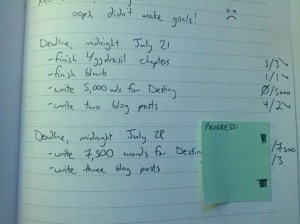 oops, didn't make goals!
Deadline, midnight July 21
- finish Yggdrasil chapters 3/3
- finish blurb 1/1
- write 5,000 wds for Destiny 0/5000
- write two blog posts 4/2
Deadline, midnight July 28
PROGRESS:
- write 7,500 words for Destiny /7,500
- write three blog posts /3